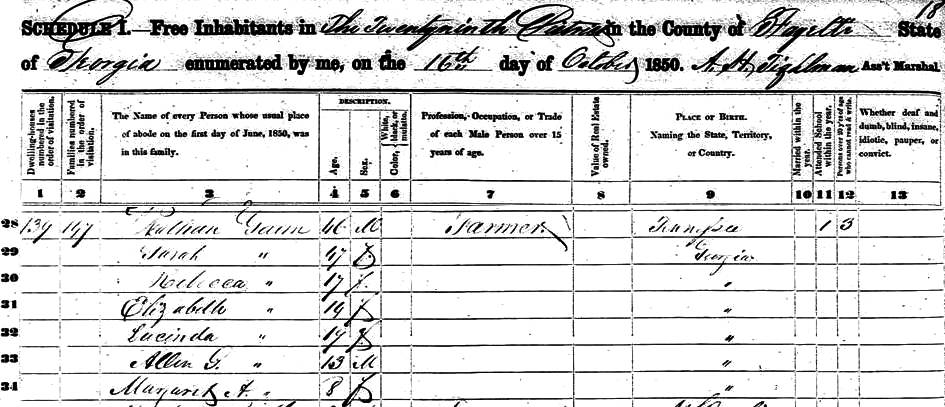 18
SCHEDULE I.—Free Inhabitants in The Twenty ninth in the County of Fayette State
of Georgia enumerated by me, on the 16th day of October 1850. A. H. Tighlman Ass't Marshal.
DESCRIPTION.
Dwelling-houses numbered in the order of visitation.
Families numbered in the order of visitation.
The Name of every Person whose usual place of abode on the first day of June, 1850, was in this family.
Age.
Sex.
Color, White, black, or mulatto.
Profession, Occupation, or Trade of each Male Person over 15 years of age.
Value of Real Estate owned.
PLACE OF BIRTH. Naming the State, Territory, or Country.
Married within the year.
Attended School within the year.
Persons over 20 years of age who cannot read & write.
Whether deaf and dumb, blind, insane, idiotic, pauper, or convict.
1 2 3 4 5 6 7 8 9 10 11 12 13
28 139 147 Nathan 46 M Farmer Tennessee 1 3
29 Sarah " 47 f Georgia
30 Rebecca " 17 f "
31 Elizabeth " 19 f "
32 Lucinda " 17 f "
33 Allen G. " 13 M "
34 Margaret A. " 8 f "